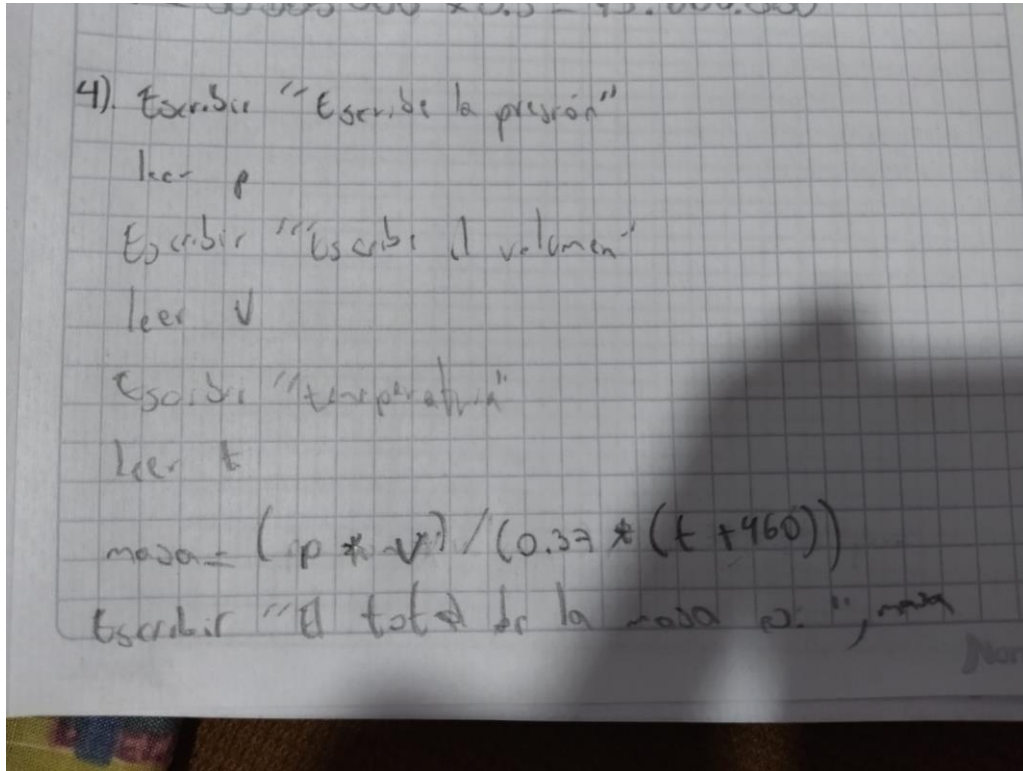 000 × 0.5 = 45.000.000
4). Escribir "Escribe la presión"
leer p
Escribir "Escribe el volumen"
leer V
Escribir "temperatura"
leer t
masa = (p * V) / (0.37 * (t + 460))
Escribir "El total de la masa es: ", masa
Nor